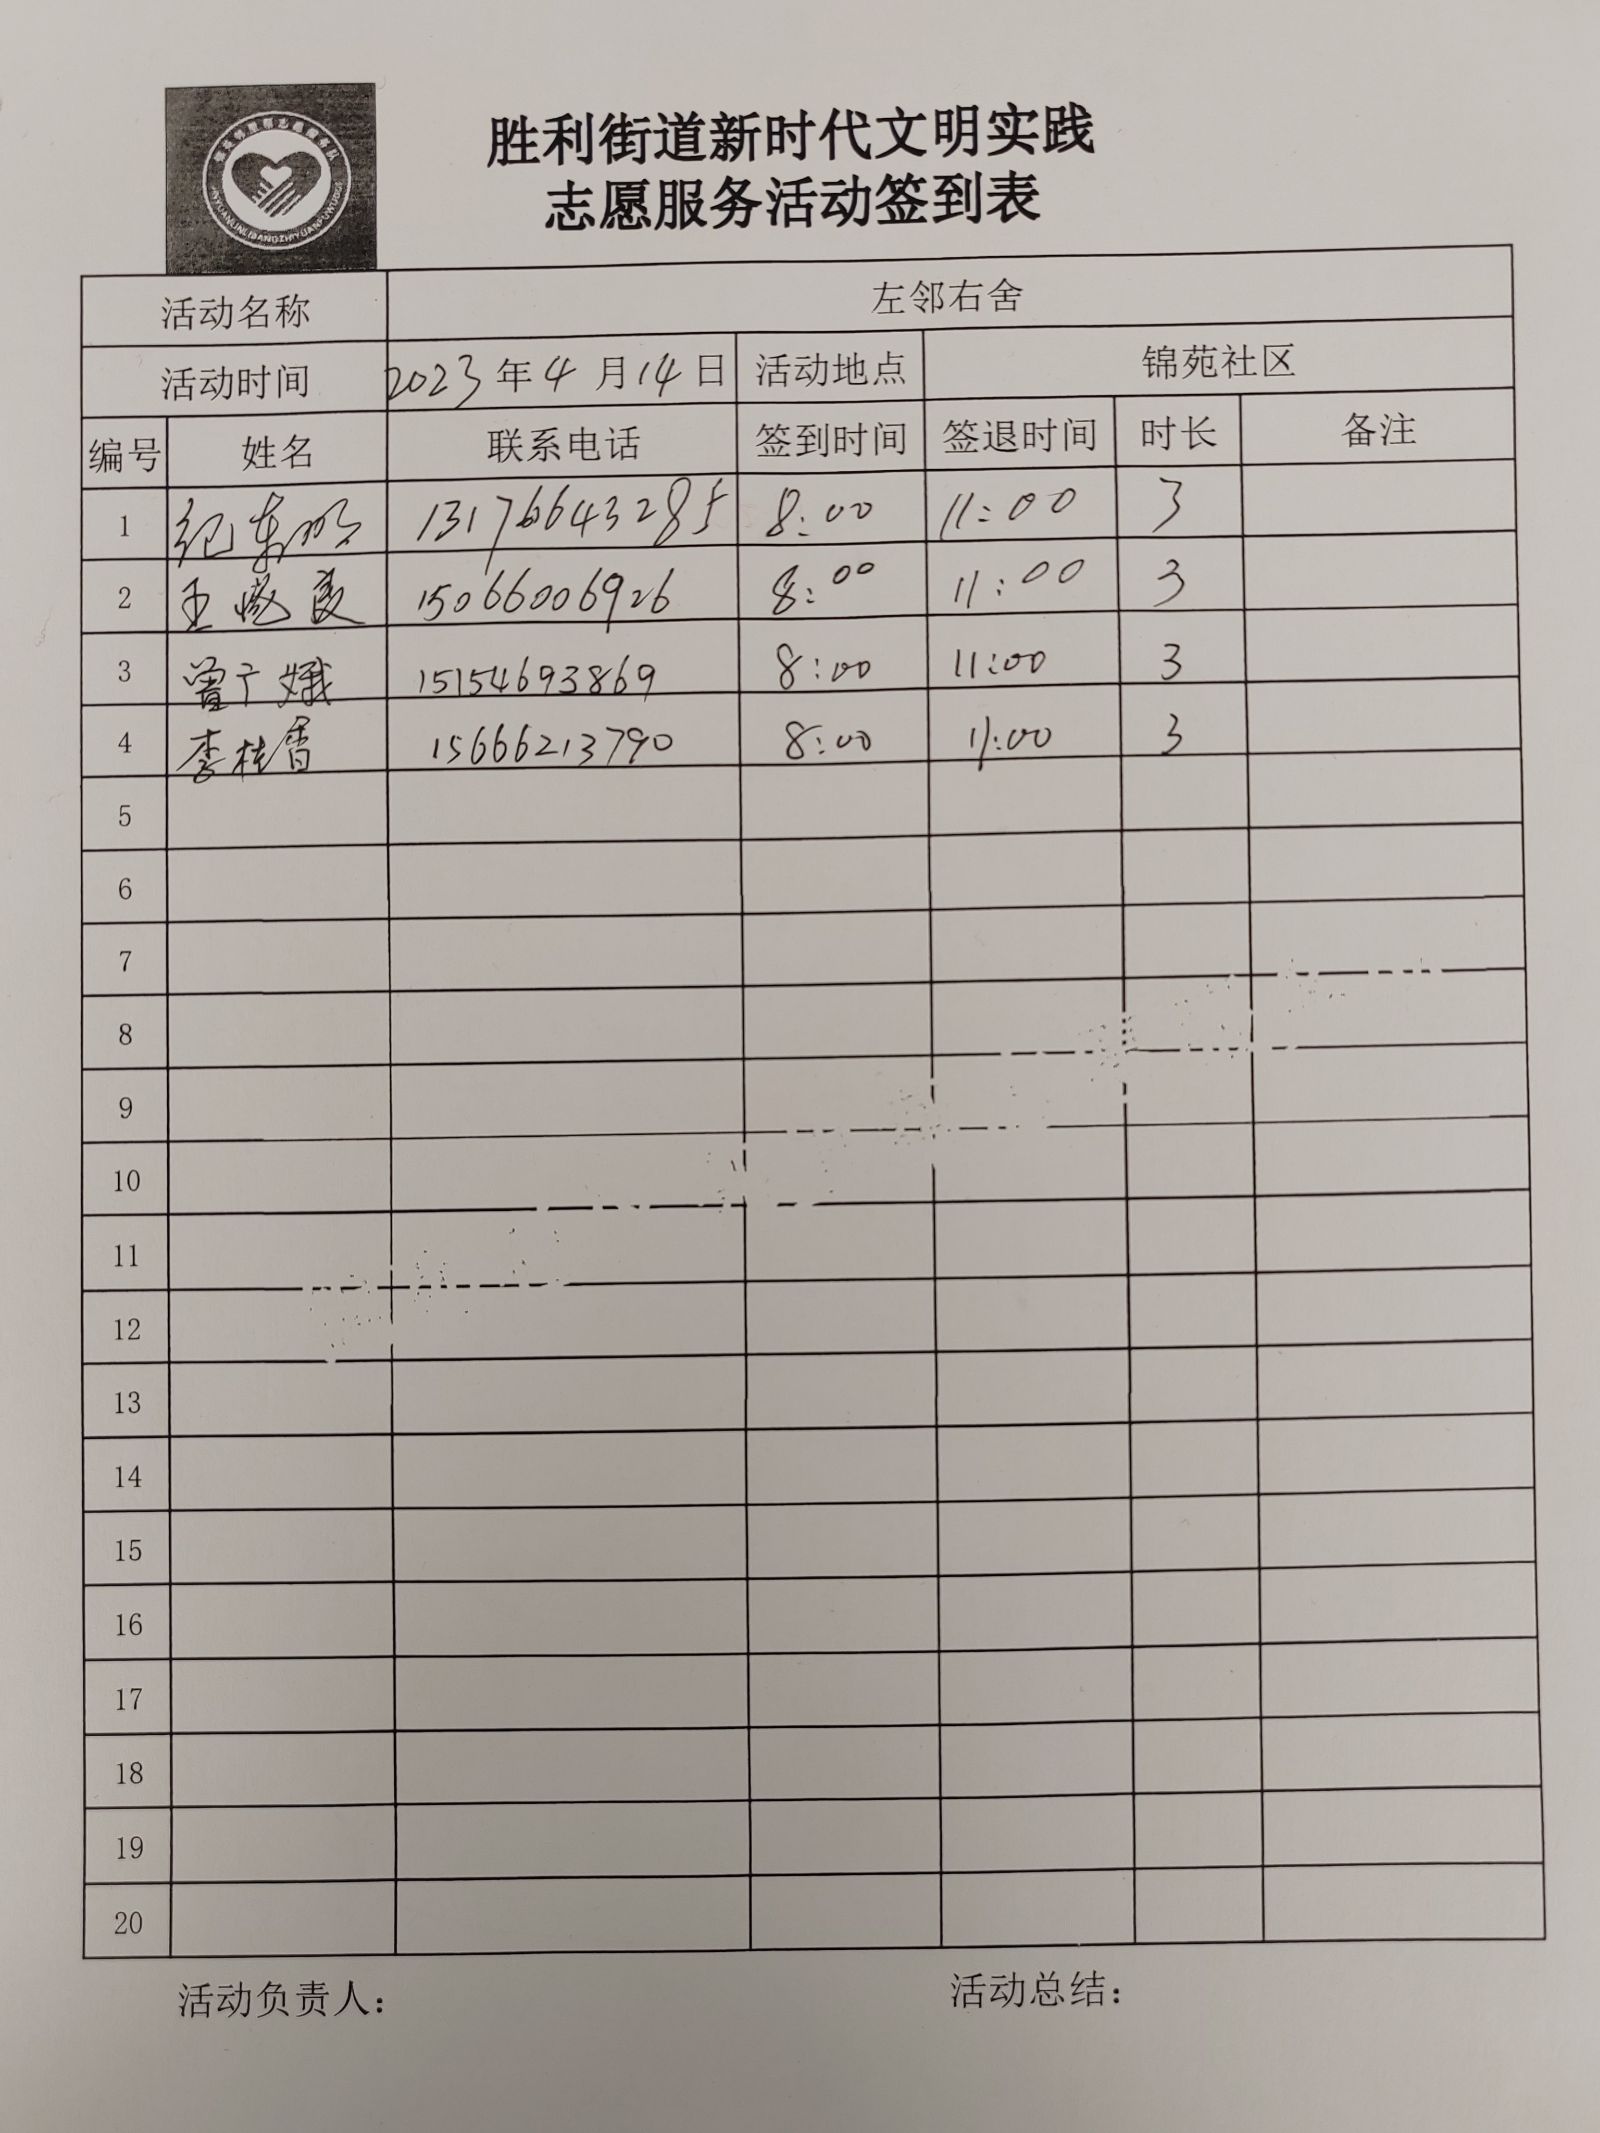 胜利街道新时代文明实践
志愿服务活动签到表
活动名称 左邻右舍
活动时间 2023年4月14日 活动地点 锦苑社区
编号 姓名 联系电话 签到时间 签退时间 时长 备注
1 纪东明 13176643285 8:00 11:00 3
2 王 良 15066006926 8:00 11:00 3
3 曾广娥 15154693869 8:00 11:00 3
4 李桂香 15666213790 8:00 11:00 3
5
6
7
8
9
10
11
12
13
14
15
16
17
18
19
20
活动负责人： 活动总结：